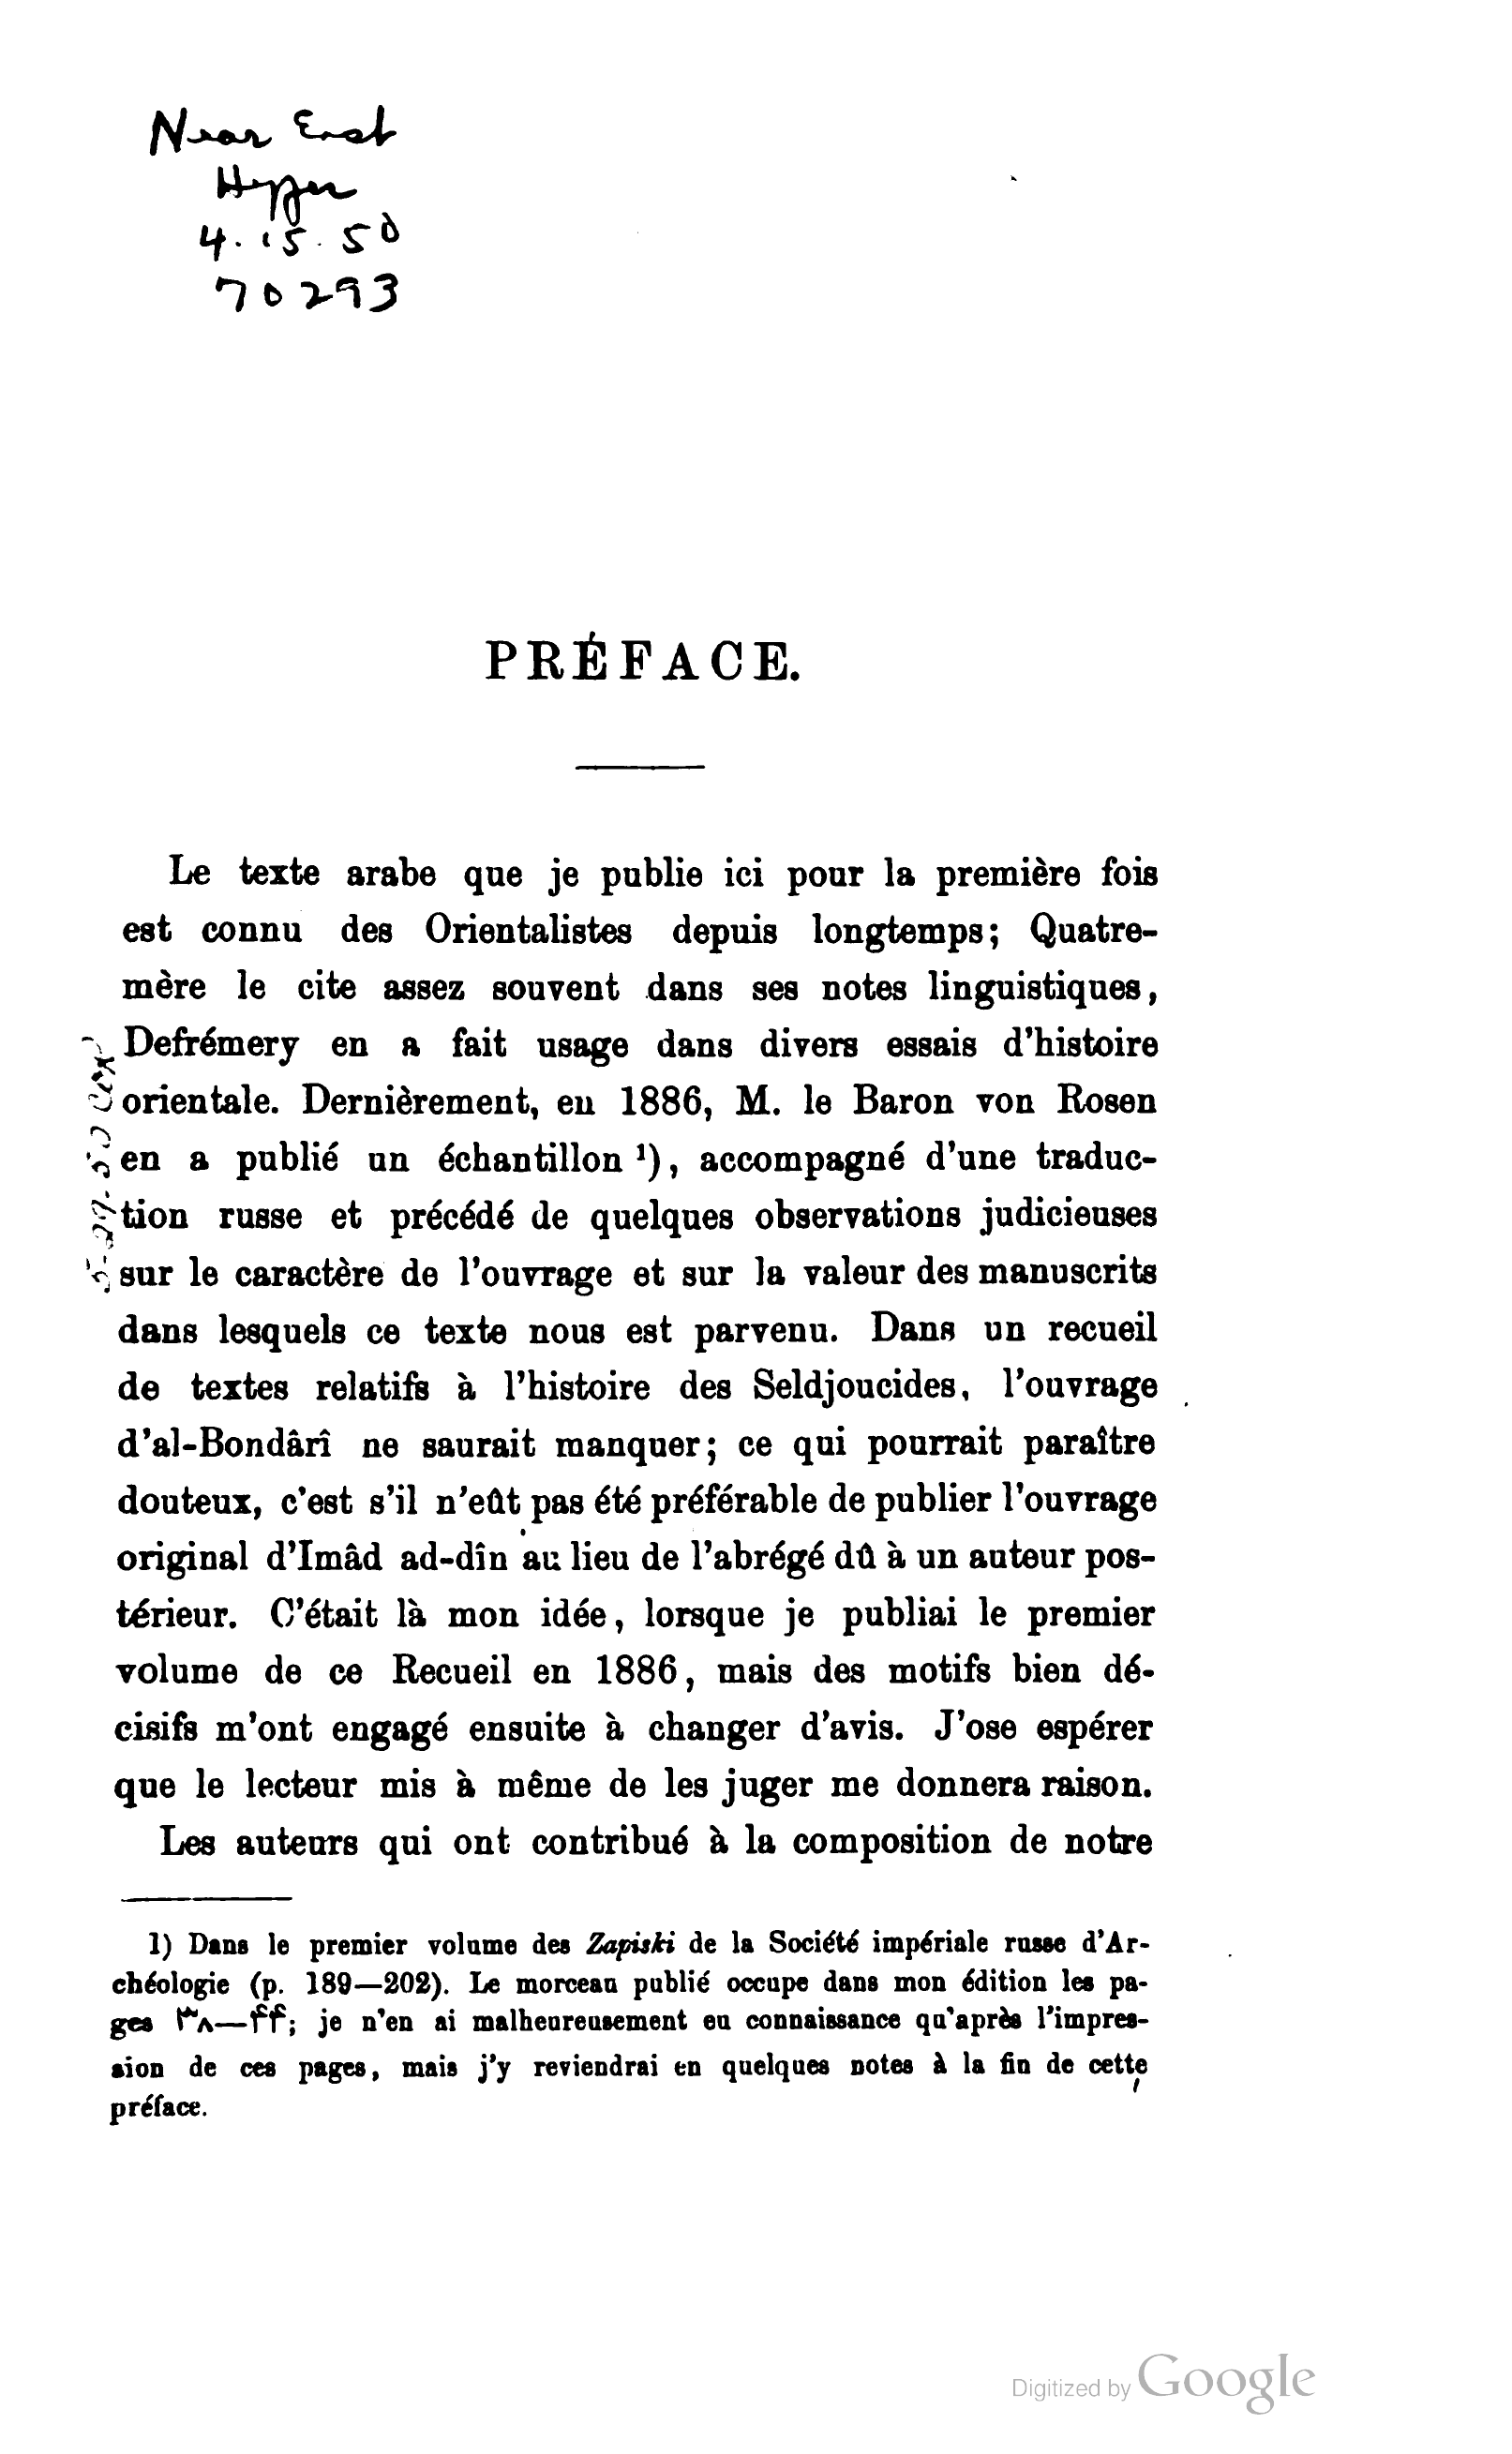 Near East
4.15.50
70293
PRÉFACE.
Le texte arabe que je publie ici pour la première fois
est connu des Orientalistes depuis longtemps; Quatre-
mère le cite assez souvent dans ses notes linguistiques,
Defrémery en a fait usage dans divers essais d'histoire
orientale. Dernièrement, en 1886, M. le Baron von Rosen
en a publié un échantillon ¹), accompagné d'une traduc-
tion russe et précédé de quelques observations judicieuses
sur le caractère de l'ouvrage et sur la valeur des manuscrits
dans lesquels ce texte nous est parvenu. Dans un recueil
de textes relatifs à l'histoire des Seldjoucides, l'ouvrage
d'al-Bondârî ne saurait manquer; ce qui pourrait paraître
douteux, c'est s'il n'eût pas été préférable de publier l'ouvrage
original d'Imâd ad-dîn au lieu de l'abrégé dû à un auteur pos-
térieur. C'était là mon idée, lorsque je publiai le premier
volume de ce Recueil en 1886, mais des motifs bien dé-
cisifs m'ont engagé ensuite à changer d'avis. J'ose espérer
que le lecteur mis à même de les juger me donnera raison.
Les auteurs qui ont contribué à la composition de notre
1) Dans le premier volume des Zapiski de la Société impériale russe d'Ar-
chéologie (p. 189—202). Le morceau publié occupe dans mon édition les pa-
ges ٣٨—٤٤; je n'en ai malheureusement eu connaissance qu'après l'impres-
sion de ces pages, mais j'y reviendrai en quelques notes à la fin de cette
préface.
Digitized by Google